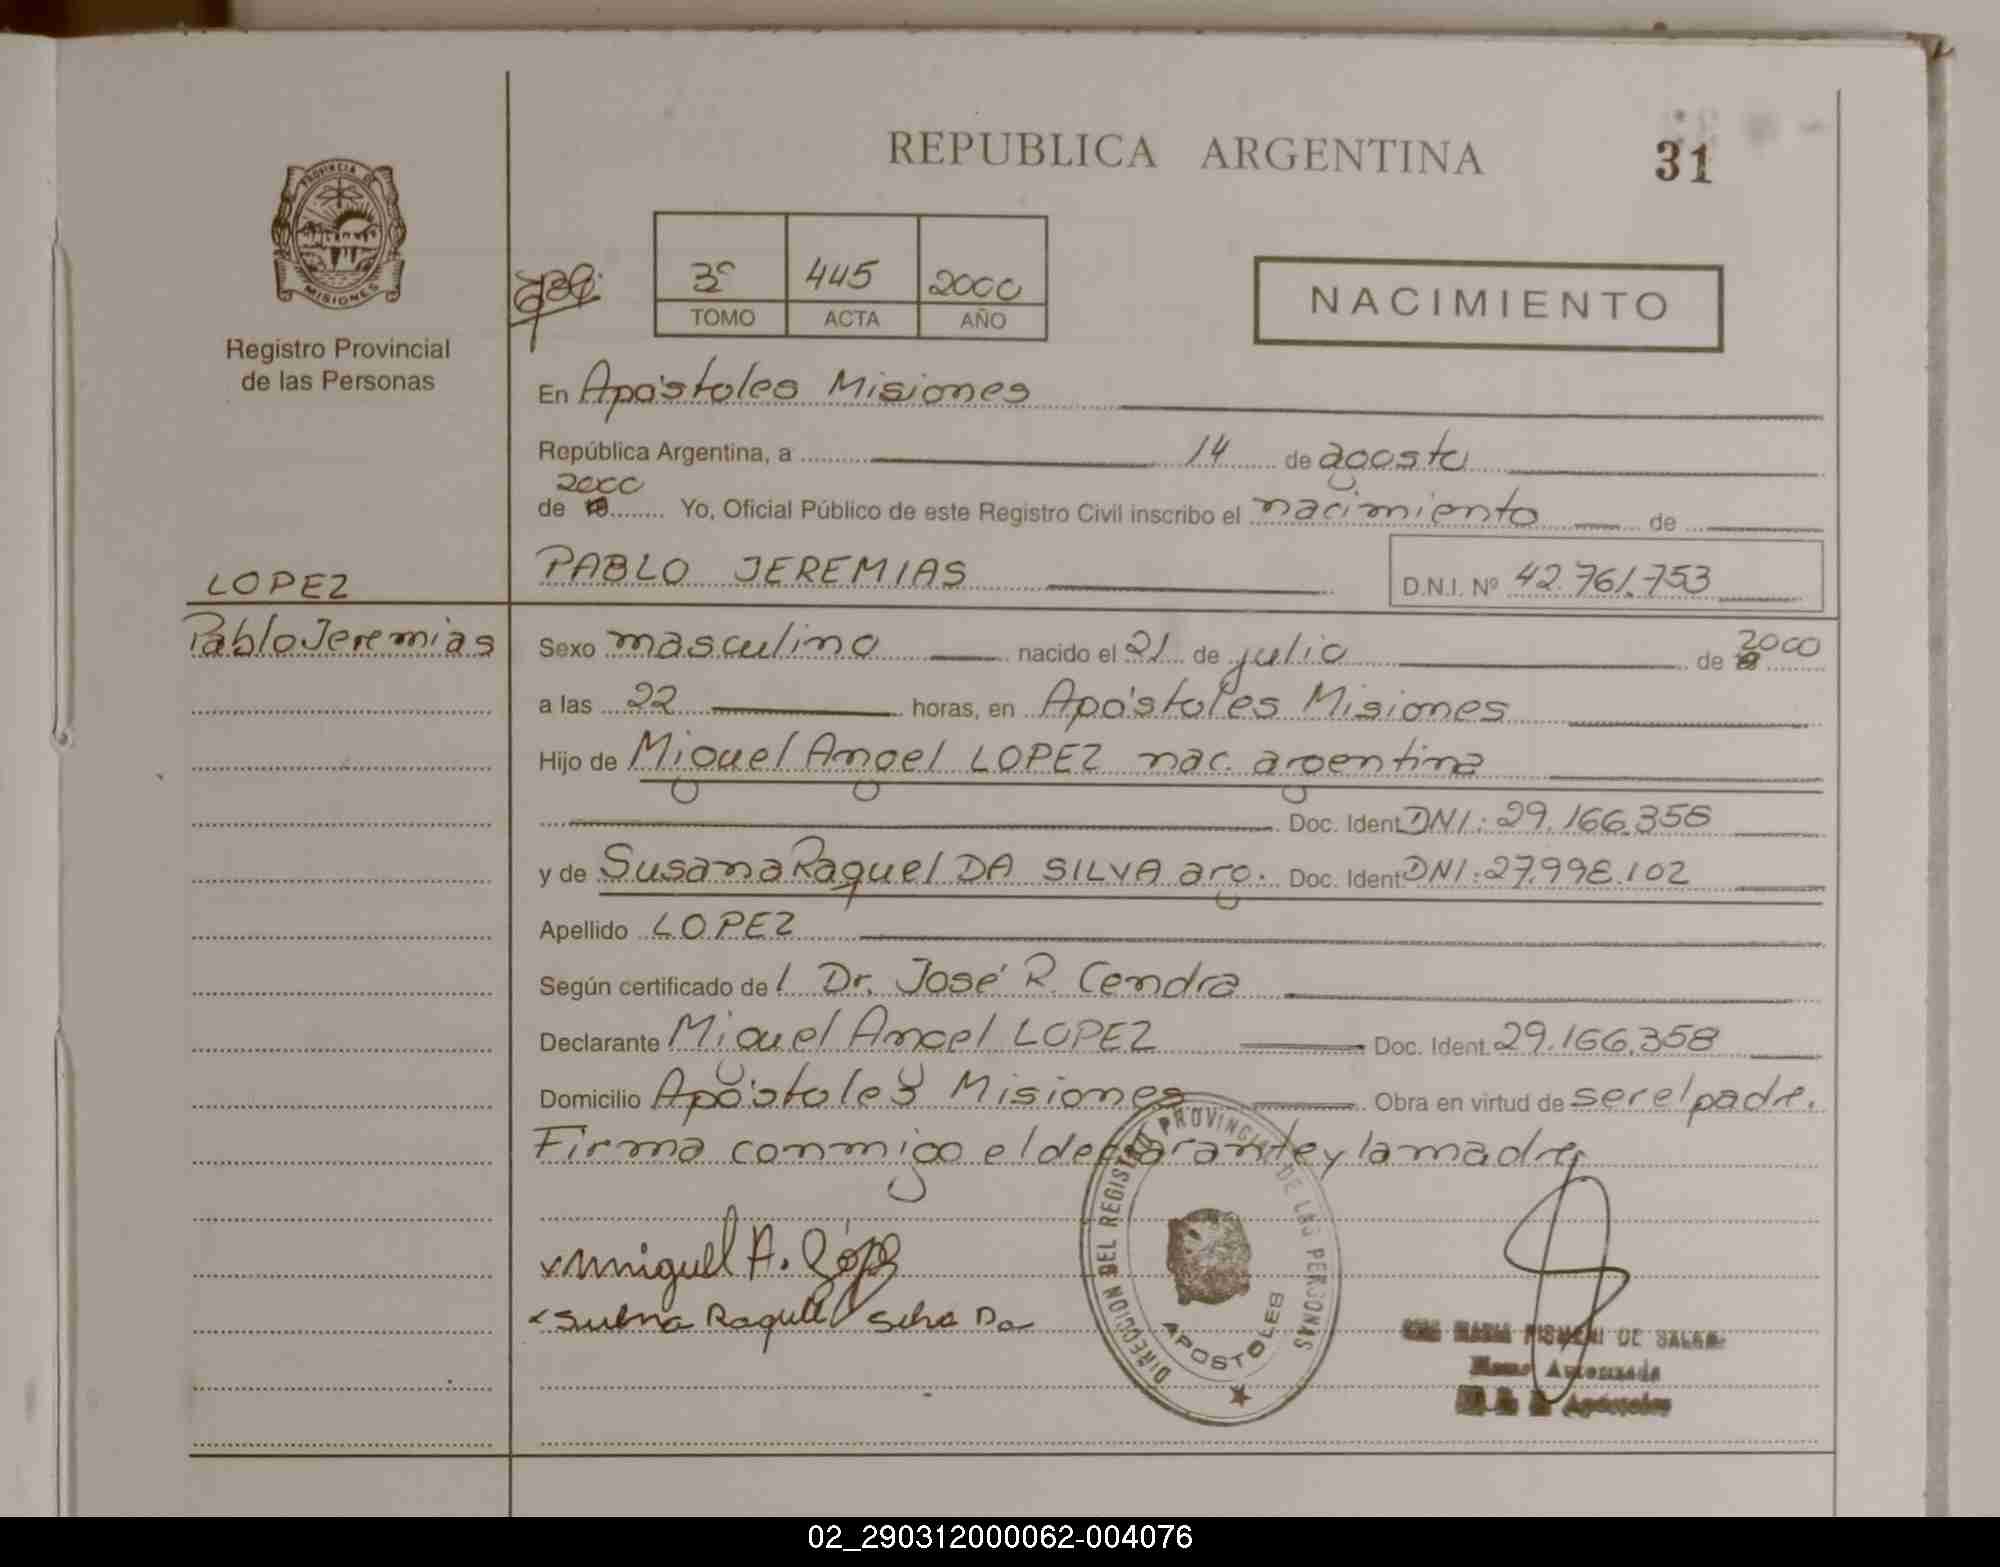 REPUBLICA ARGENTINA
31
PROVINCIA DE
MISIONES
Registro Provincial
de las Personas
3º 445 2000
TOMO ACTA AÑO
NACIMIENTO
En Apóstoles Misiones
República Argentina, a 14 de agosto
2000
de 19 Yo, Oficial Público de este Registro Civil inscribo el nacimiento de
LOPEZ
Pablo Jeremias
PABLO JEREMIAS D.N.I. Nº 42.761.753
Sexo masculino nacido el 21 de julio de 2000
a las 22 horas, en Apóstoles Misiones
Hijo de Miguel Angel LOPEZ nac. argentina
Doc. Ident DNI: 29.166.358
y de Susana Raquel DA SILVA arg. Doc. Ident DNI: 27.998.102
Apellido LOPEZ
Según certificado del Dr. José R. Cendra
Declarante Miguel Angel LOPEZ Doc. Ident. 29.166.358
Domicilio Apóstoles Misiones Obra en virtud de ser el padre.
Firma conmigo el declarante y la madre
x Miguel A. López
x Susana Raquel Silva Da
DIRECCION DEL REGISTRO PROVINCIAL DE LAS PERSONAS
APOSTOLES
MARIA DE
Autorizada
Apóstoles
02_290312000062-004076